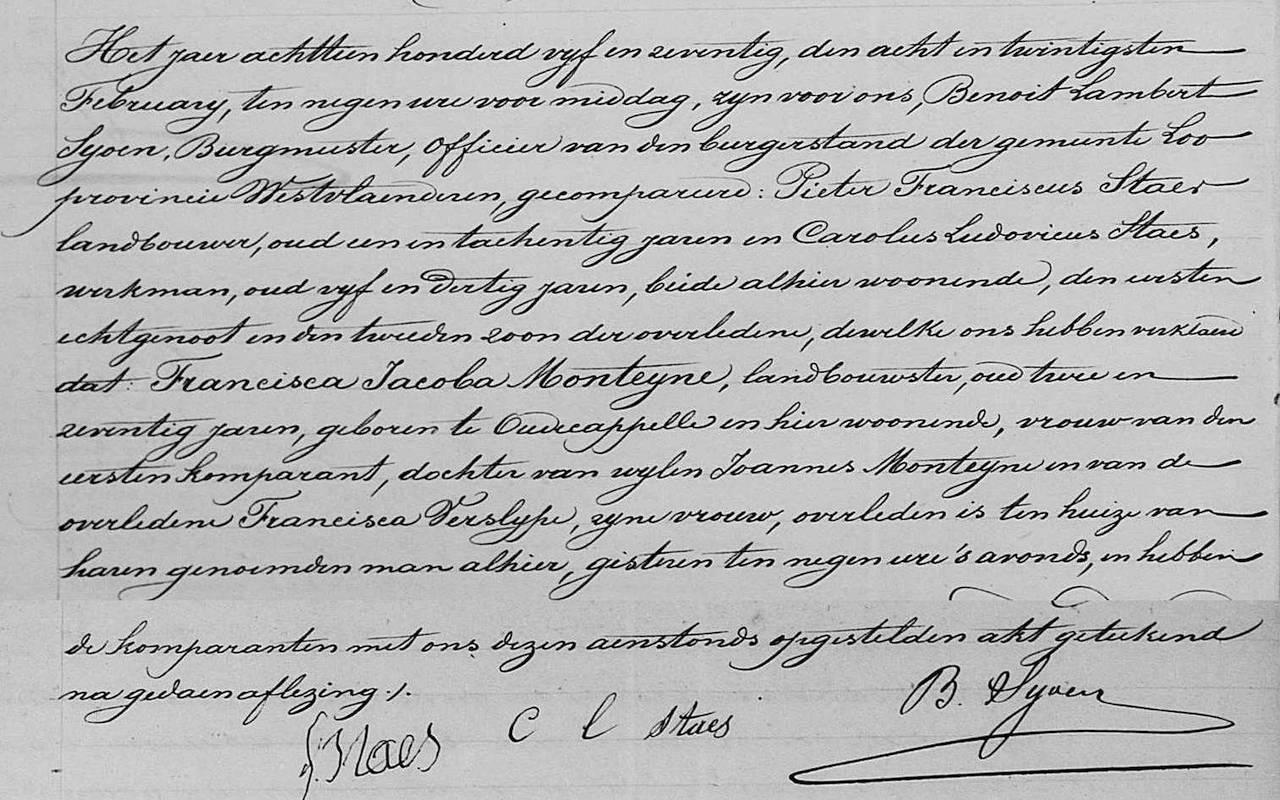 Het jaer achttien honderd vyf en zeventig, den acht en twintigsten
February, ten negen ure voor middag, zyn voor ons, Benoit Lambert
Syoen, Burgmeester, Officier van den burgerstand der gemeente Loo
provincie Westvlaenderen, gecompareerd: Pieter Franciscus Staes
landbouwer, oud een en tachentig jaren en Carolus Ludovicus Staes,
werkman, oud vyf en dertig jaren, beide alhier woonende, den eersten
echtgenoot en den tweeden zoon der overledene, dewelke ons hebben verklaerd
dat: Francisca Jacoba Monteyne, landbouwster, oud twee en
zeventig jaren, geboren te Oudecappelle en hier woonende, vrouw van den
eersten komparant, dochter van wylen Joannes Monteyne en van de
overledene Francisca Verslype, zyne vrouw, overleden is ten huize van
haren genoemden man alhier, gisteren ten negen ure 's avonds, en hebben
de komparanten met ons dezen aenstonds opgestelden akt geteekend
na gedaen aflezing ./.
B. Syoen
Staes C l Staes